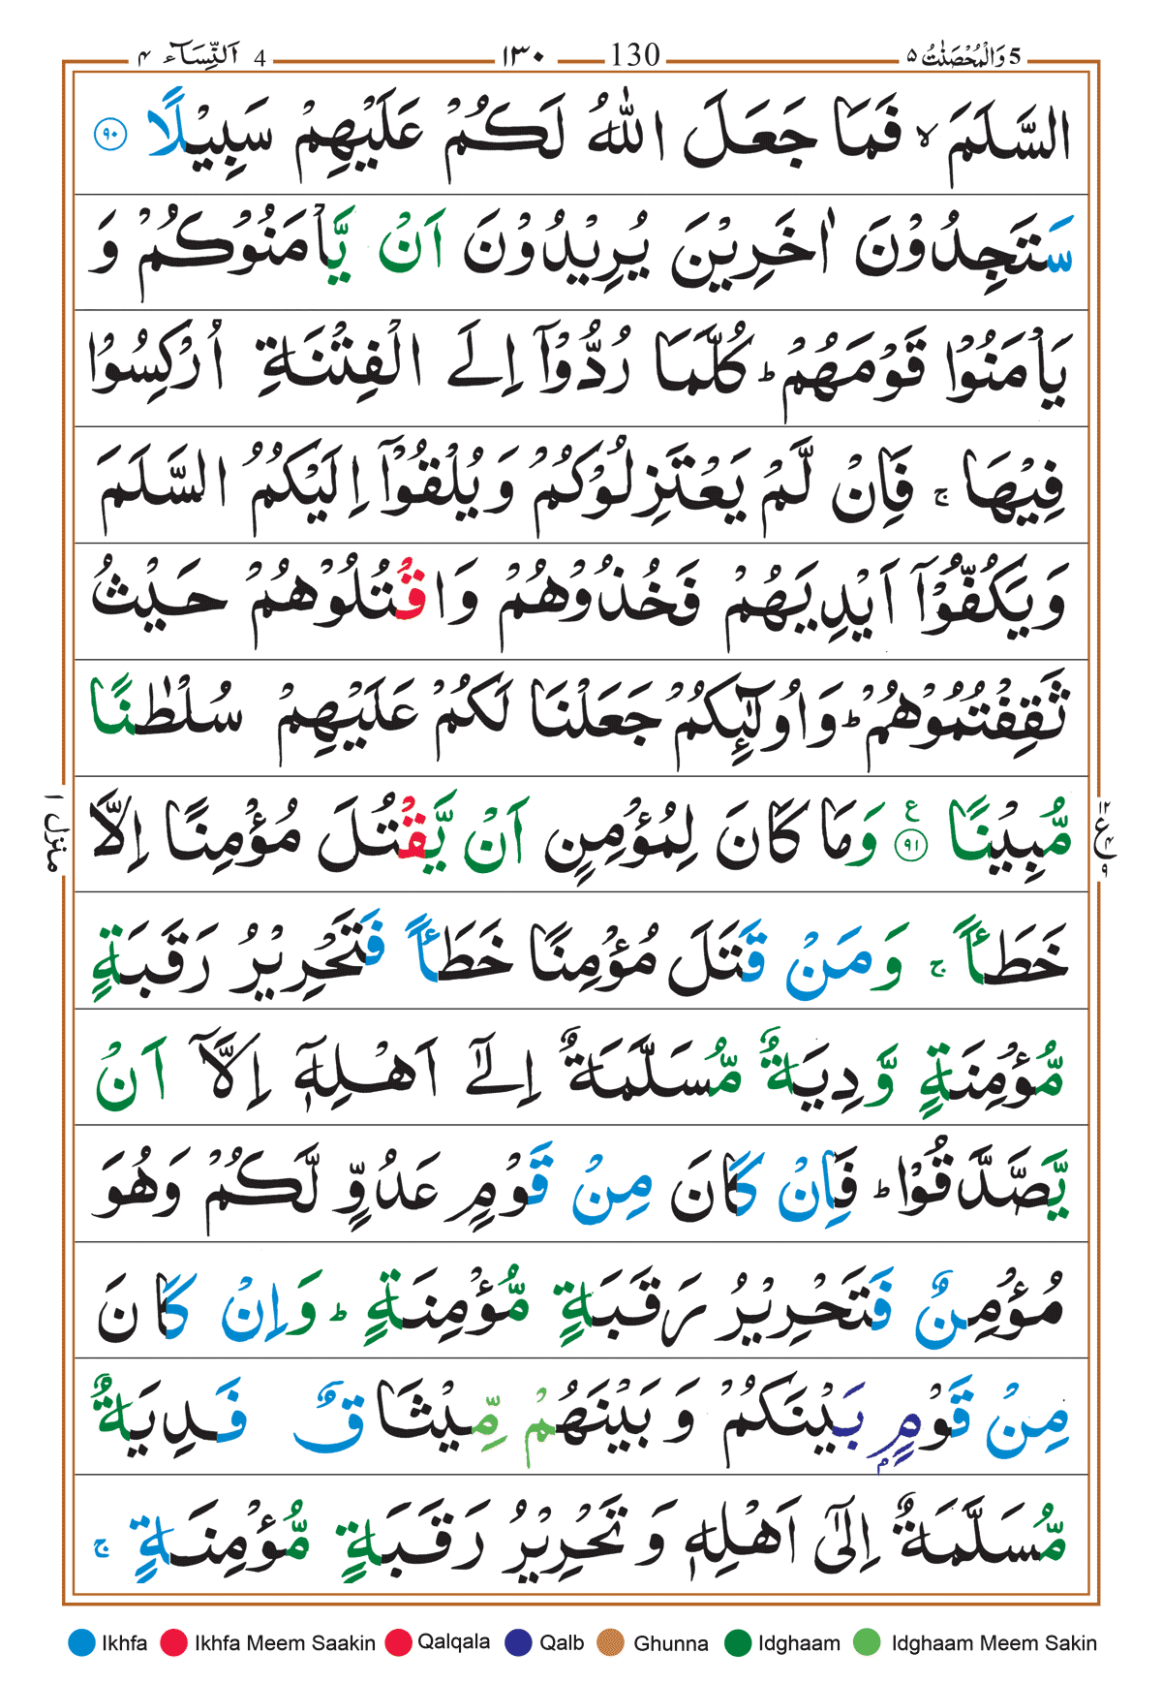 5 وَالْمُحْصَنٰتُ ٥ 130 ١٣٠ 4 اَلنِّسَآء ٤
السَّلَمَ ۙ فَمَا جَعَلَ اللّٰهُ لَكُمْ عَلَيْهِمْ سَبِيْلًا ٩٠
سَتَجِدُوْنَ اٰخَرِيْنَ يُرِيْدُوْنَ اَنْ يَّاْمَنُوْكُمْ وَ
يَاْمَنُوْا قَوْمَهُمْ ؕ كُلَّمَا رُدُّوْٓا اِلَى الْفِتْنَةِ اُرْكِسُوْا
فِيْهَا ۚ فَاِنْ لَّمْ يَعْتَزِلُوْكُمْ وَيُلْقُوْٓا اِلَيْكُمُ السَّلَمَ
وَيَكُفُّوْٓا اَيْدِيَهُمْ فَخُذُوْهُمْ وَاقْتُلُوْهُمْ حَيْثُ
ثَقِفْتُمُوْهُمْ ؕ وَاُولٰٓئِكُمْ جَعَلْنَا لَكُمْ عَلَيْهِمْ سُلْطٰنًا
مُّبِيْنًا ٩١ ع وَمَا كَانَ لِمُؤْمِنٍ اَنْ يَّقْتُلَ مُؤْمِنًا اِلَّا
خَطَـًٔا ۚ وَمَنْ قَتَلَ مُؤْمِنًا خَطَـًٔا فَتَحْرِيْرُ رَقَبَةٍ
مُّؤْمِنَةٍ وَّدِيَةٌ مُّسَلَّمَةٌ اِلٰٓى اَهْلِهٖٓ اِلَّآ اَنْ
يَّصَّدَّقُوْا ؕ فَاِنْ كَانَ مِنْ قَوْمٍ عَدُوٍّ لَّكُمْ وَهُوَ
مُؤْمِنٌ فَتَحْرِيْرُ رَقَبَةٍ مُّؤْمِنَةٍ ؕ وَاِنْ كَانَ
مِنْ قَوْمٍۭ بَيْنَكُمْ وَبَيْنَهُمْ مِّيْثَاقٌ فَدِيَةٌ
مُّسَلَّمَةٌ اِلٰٓى اَهْلِهٖ وَتَحْرِيْرُ رَقَبَةٍ مُّؤْمِنَةٍ ۚ
منزل ١
Ikhfa Ikhfa Meem Saakin Qalqala Qalb Ghunna Idghaam Idghaam Meem Sakin